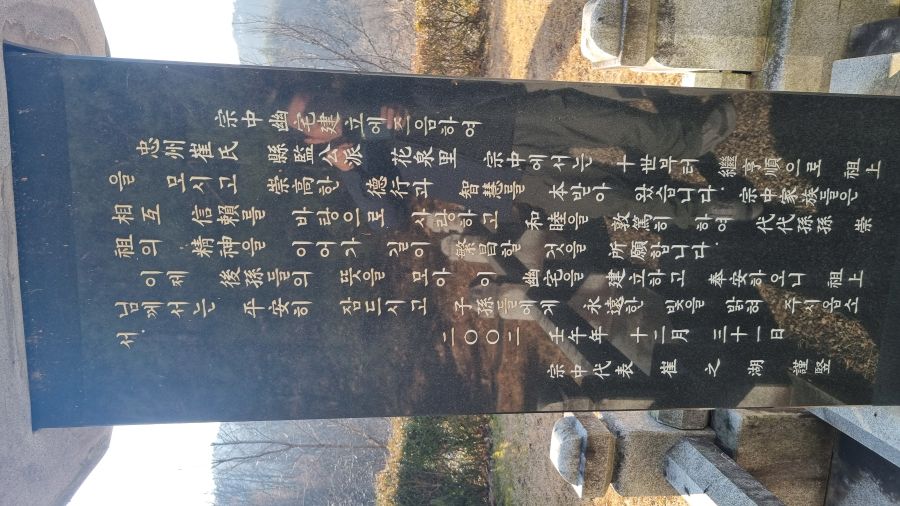 宗中幽宅建立에즈음하여
忠州崔氏 縣監公派 花泉里 宗中에서는 十世부터 繼亨順으로 祖上
을 모시고 崇高한 德行과 智慧를 本받아 왔습니다. 宗中家族들은
相互 信賴를 바탕으로 사랑하고 和睦을 敦篤히 하여 代代孫孫 崇
祖의 精神을 이어가 길이 繁昌할 것을 所願합니다.
이제 後孫들의 뜻을 모아 이 幽宅을 建立하고 奉安하오니 祖上
님께서는 平安히 잠드시고 子孫들에게 永遠한 빛을 밝혀 주시옵소
서.
二〇〇二 壬午年 十二月 三十一日
宗中代表 崔 之 湖 謹竪